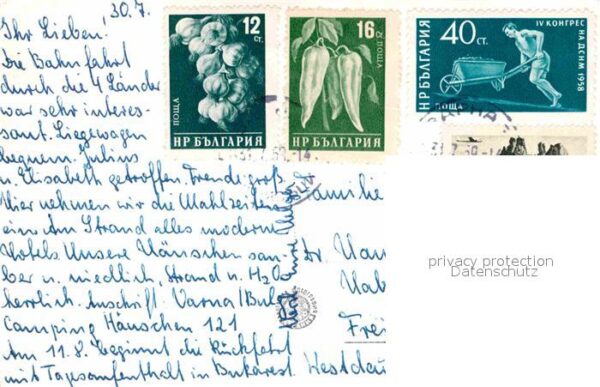 30.7.
Ihr Lieben!
Die Bahnfahrt
durch die 4 Länder
war sehr interes-
sant. Liegewagen
bequem. Julius
u. Elisabeth getroffen. Freude groß.
Hier nehmen wir die Mahlzeiten
ein. Am Strand alles moderne
Hotels. Unsere Häuschen sau-
ber u. niedlich, Strand u. H2O
herrlich. Anschrift: Varna/Bul.
Camping Häuschen 121
Am 11.8. beginnt die Rückfahrt
mit Tagesaufenthalt in Bukarest.
12 СТ.
ПОЩА
Н Р БЪЛГАРИЯ
16 СТ.
ПОЩА
Н Р БЪЛГАРИЯ
40 СТ.
IV КОНГРЕС
НА ДСНМ 1958
Н Р БЪЛГАРИЯ
ПОЩА
Familie
Dr
Frei
Westdeu
privacy protection
Datenschutz